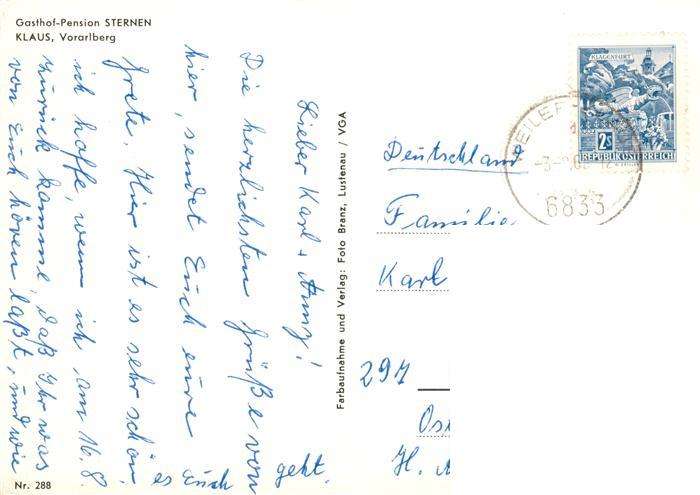 Gasthof-Pension STERNEN
KLAUS, Vorarlberg
Lieber Karl + Anny!
Die herzlichsten Grüße von
hier, sendet Euch eure
Grete. Hier ist es sehr schön.
ich hoffe, wenn ich am 16.8.
zurück komme, daß Ihr was
von Euch hören laßt, und wie
es Euch geht.
Nr. 288
Farbaufnahme und Verlag: Foto Branz, Lustenau / VGA
KLAGENFURT
2S
REPUBLIK ÖSTERREICH
6833
Deutschland
Familie
Karl
291
Os
H.